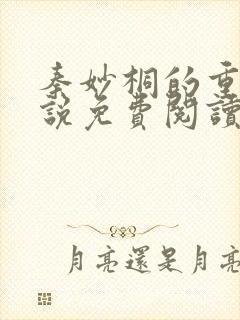 秦妙桐的重
說免費閱讀
月亮還是月亮